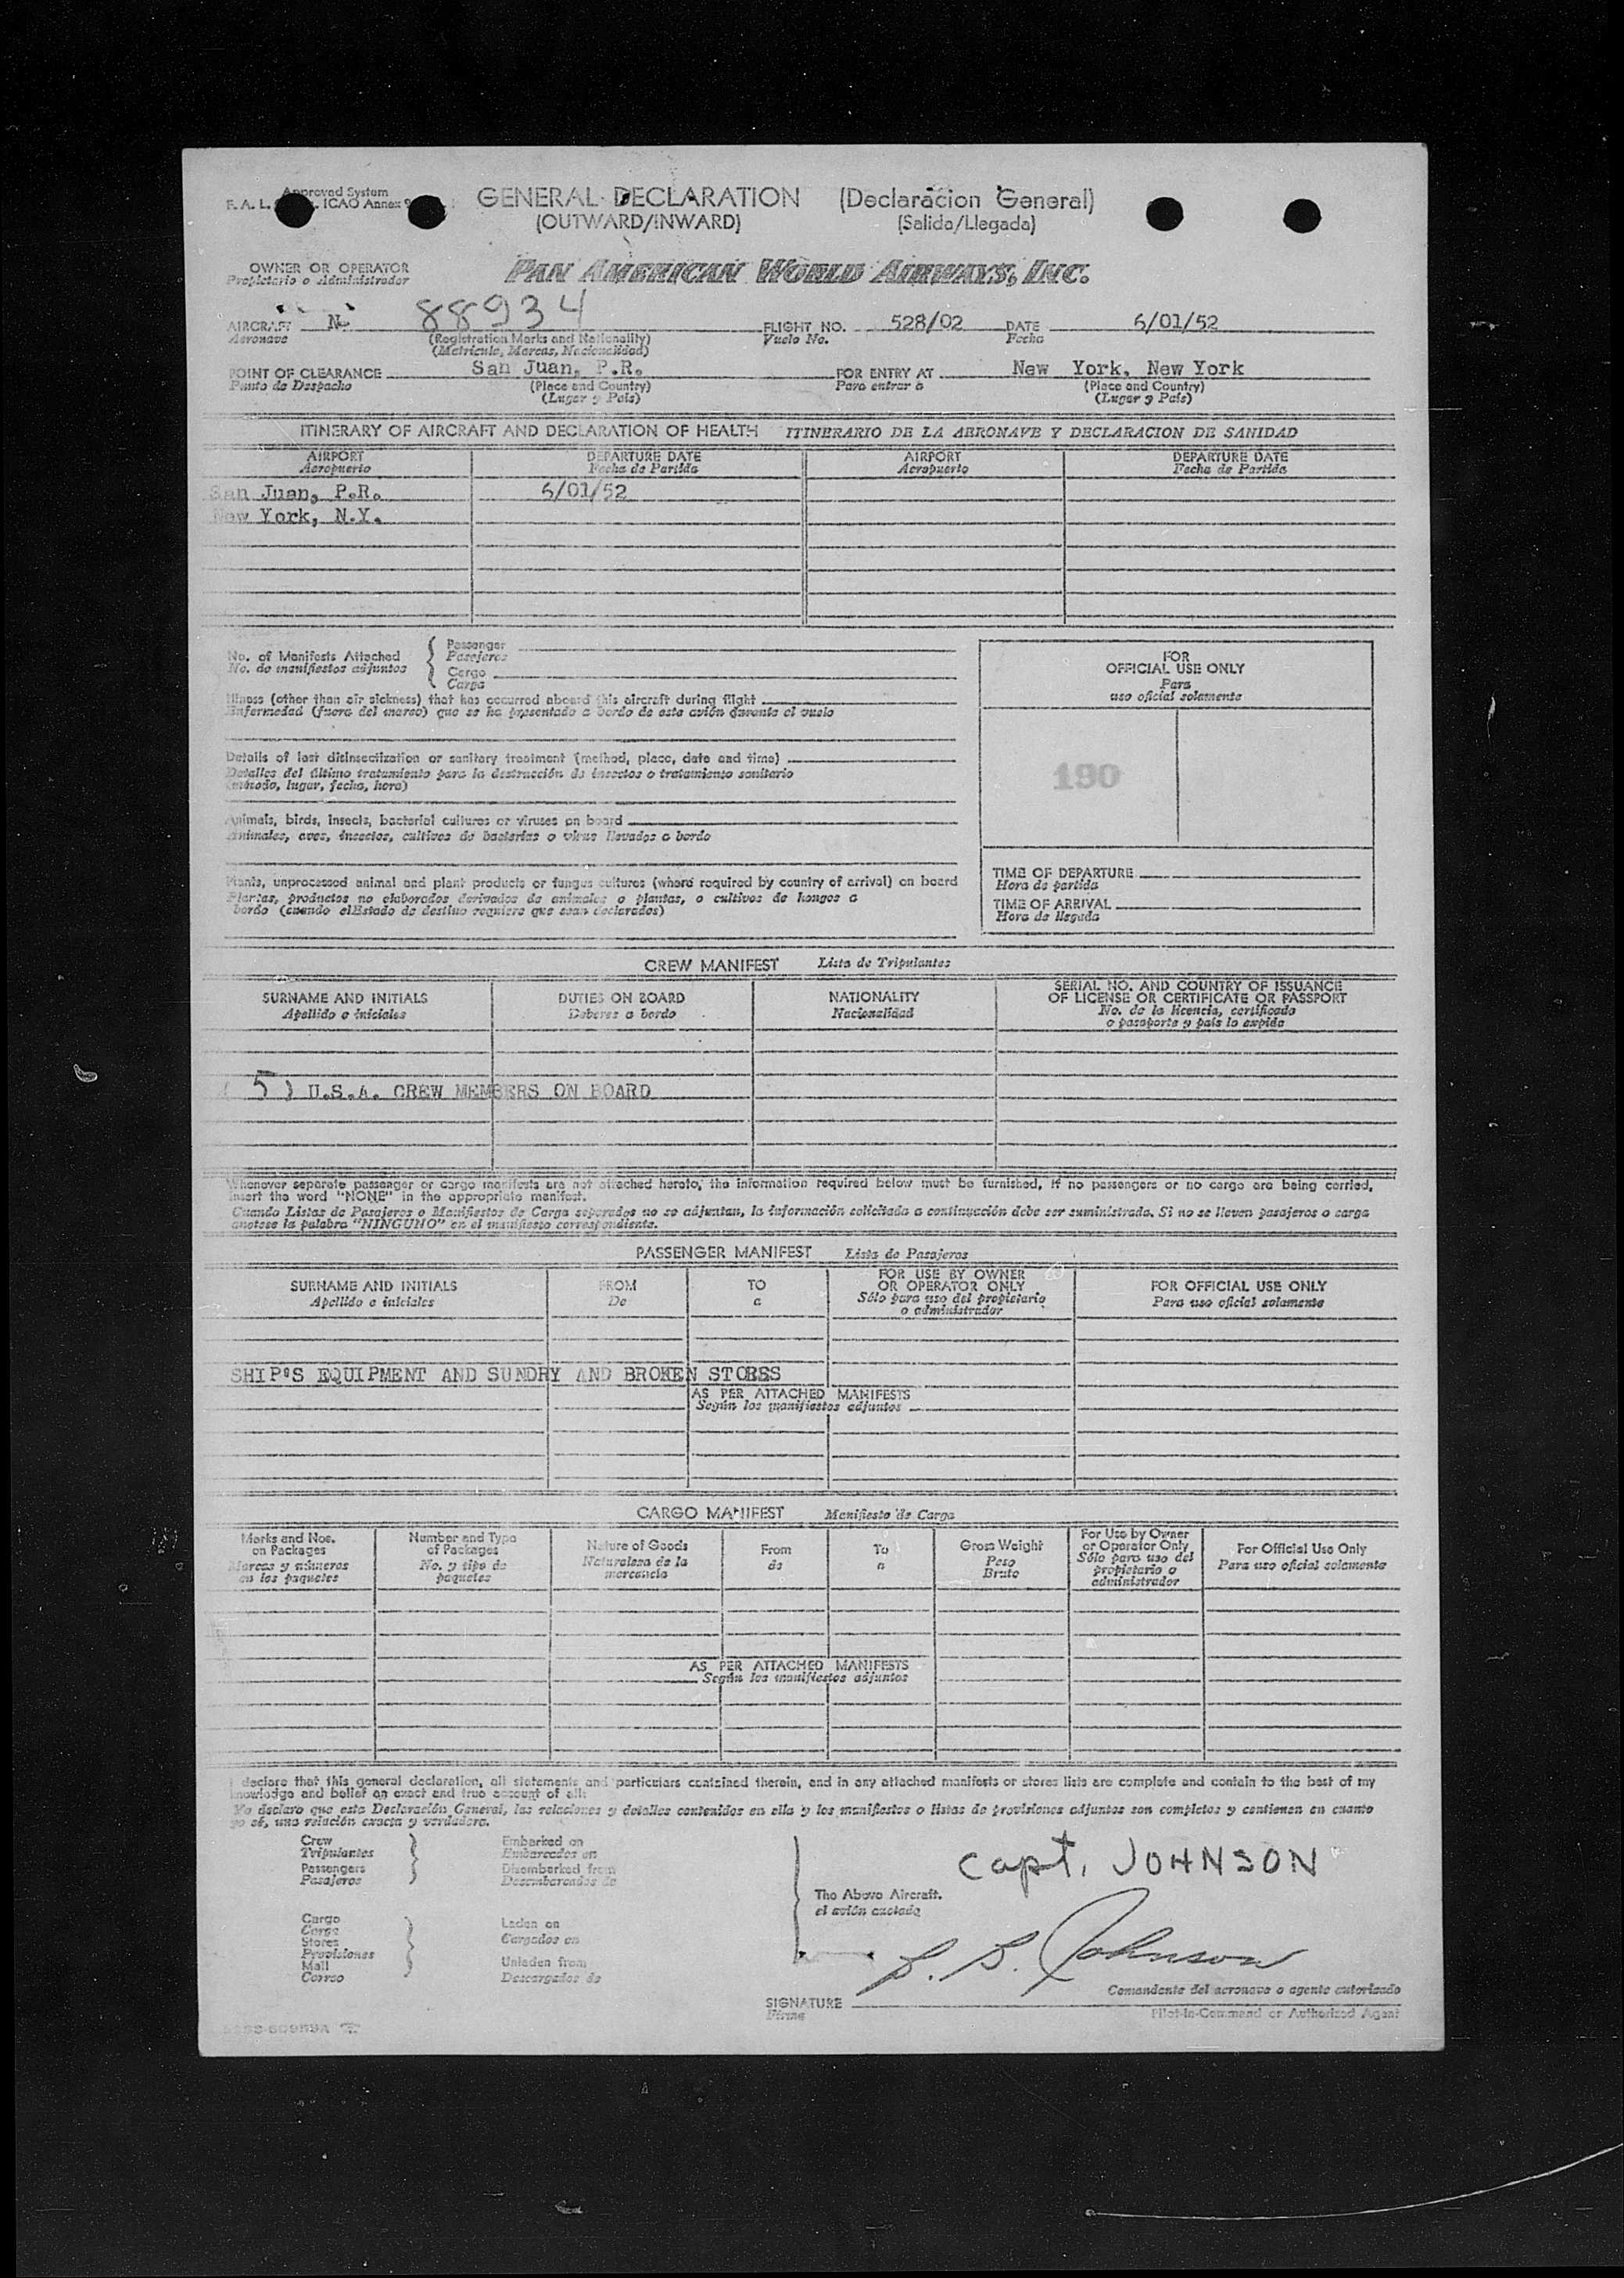 Approved System
F. A. L. ICAO Annex 9
GENERAL DECLARATION (Declaracion General)
(OUTWARD/INWARD) (Salida/Llegada)
OWNER OR OPERATOR PAN AMERICAN WORLD AIRWAYS, INC.
Propietario o Administrador
AIRCRAFT N 88934 FLIGHT NO. 528/02 DATE 6/01/52
Aeronave (Registration Marks and Nationality) Vuelo No. Fecha
(Matricula, Marcas, Nacionalidad)
POINT OF CLEARANCE San Juan, P.R. FOR ENTRY AT New York, New York
Punto de Despacho (Place and Country) Para entrar a (Place and Country)
(Lugar y País) (Lugar y País)
ITINERARY OF AIRCRAFT AND DECLARATION OF HEALTH ITINERARIO DE LA AERONAVE Y DECLARACION DE SANIDAD
AIRPORT DEPARTURE DATE AIRPORT DEPARTURE DATE
Aeropuerto Fecha de Partida Aeropuerto Fecha de Partida
San Juan, P.R. 6/01/52
New York, N.Y.
No. of Manifests Attached Passenger
No. de manifiestos adjuntos Pasajeros
Cargo
Carga
FOR
OFFICIAL USE ONLY
Para
uso oficial solamente
Illness (other than air sickness) that has occurred aboard this aircraft during flight
Enfermedad (fuera del mareo) que se ha presentado a bordo de este avión durante el vuelo
Details of last disinsectization or sanitary treatment (method, place, date and time)
Detalles del último tratamiento para la destrucción de insectos o tratamiento sanitario
(método, lugar, fecha, hora)
190
Animals, birds, insects, bacterial cultures or viruses on board
Animales, aves, insectos, cultivos de bacterias o virus llevados a bordo
Plants, unprocessed animal and plant products or fungus cultures (where required by country of arrival) on board
Plantas, productos no elaborados derivados de animales o plantas, o cultivos de hongos a
bordo (cuando elEstado de destino requiere que sean declarados)
TIME OF DEPARTURE
Hora de partida
TIME OF ARRIVAL
Hora de llegada
CREW MANIFEST Lista de Tripulantes
SURNAME AND INITIALS DUTIES ON BOARD NATIONALITY SERIAL NO. AND COUNTRY OF ISSUANCE
OF LICENSE OR CERTIFICATE OR PASSPORT
Apellido e iniciales Deberes a bordo Nacionalidad No. de la licencia, certificado
o pasaporte y país lo expide
( 5 ) U.S.A. CREW MEMBERS ON BOARD
Whenever separate passenger or cargo manifests are not attached hereto, the information required below must be furnished. If no passengers or no cargo are being carried,
insert the word "NONE" in the appropriate manifest.
Cuando Listas de Pasajeros o Manifiestos de Carga separados no se adjuntan, la información solicitada a continuación debe ser suministrada. Si no se lleven pasajeros o carga
anotese la palabra "NINGUNO" en el manifiesto correspondiente.
PASSENGER MANIFEST Lista de Pasajeros
SURNAME AND INITIALS FROM TO FOR USE BY OWNER
OR OPERATOR ONLY FOR OFFICIAL USE ONLY
Apellido e iniciales De a Sólo para uso del propietario
o administrador Para uso oficial solamente
SHIP'S EQUIPMENT AND SUNDRY AND BROKEN STORES
AS PER ATTACHED MANIFESTS
Según los manifiestos adjuntos
CARGO MANIFEST Manifiesto de Carga
Marks and Nos.
on Packages
Marcas y números
en los paquetes
Number and Type
of Packages
No. y tipo de
paquetes
Nature of Goods
Naturaleza de la
mercancia
From
de
To
a
Gross Weight
Peso
Bruto
For Use by Owner
or Operator Only
Sólo para uso del
propietario o
administrador
For Official Use Only
Para uso oficial solamente
AS PER ATTACHED MANIFESTS
Según los manifiestos adjuntos
I declare that this general declaration, all statements and particulars contained therein, and in any attached manifests or stores lists are complete and contain to the best of my
knowledge and belief an exact and true account of all:
Yo declaro que esta Declaración General, las relaciones y detalles contenidos en ella y los manifiestos o listas de provisiones adjuntos son completos y contienen en cuanto
yo sé, una relación exacta y verdadera.
Crew
Tripulantes
Passengers
Pasajeros
Embarked on
Embarcados en
Disembarked from
Desembarcados de
Capt. JOHNSON
The Above Aircraft.
el avión anotado
Cargo
Carga
Stores
Provisiones
Mail
Correo
Laden on
Cargados en
Unladen from
Descargados de
Johnson
Comandante del aeronave o agente autorizado
SIGNATURE
Firma
Pilot-in-Command or Authorized Agent